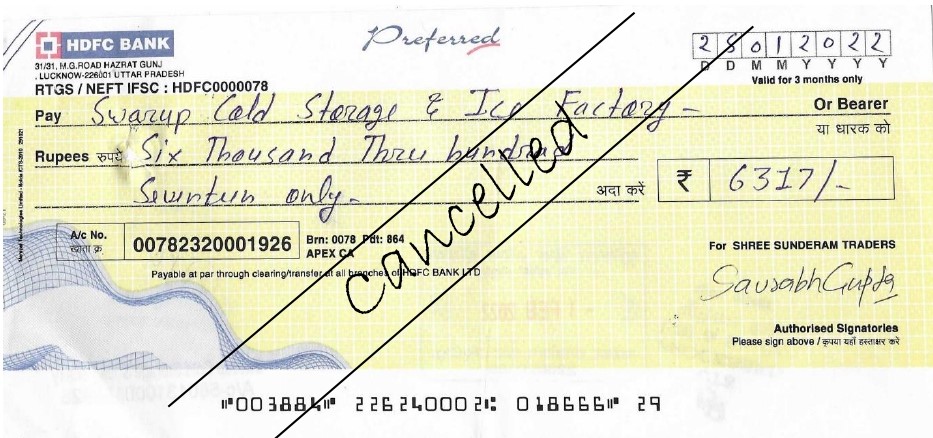 HDFC BANK
Preferred
31/31, M.G.ROAD HAZRAT GUNJ
. LUCKNOW-226001 UTTAR PRADESH
RTGS / NEFT IFSC : HDFC0000078
2 8 0 1 2 0 2 2
D D M M Y Y Y Y
Valid for 3 months only
Pay Swarup Cold Storage & Ice Factory - Or Bearer
या धारक को
Rupees रुपये Six Thousand Three hundred
Seventeen only - अदा करें ₹ 6317/-
cancelled
A/c No.
खाता क्र. 00782320001926
Brn: 0078 Pdt: 864
APEX CA
Payable at par through clearing/transfer at all branches of HDFC BANK LTD
For SHREE SUNDERAM TRADERS
Saurabh Gupta
Authorised Signatories
Please sign above / कृपया यहाँ हस्ताक्षर करें
⑈003884⑈ 226240002⑆ 018666⑈ 29